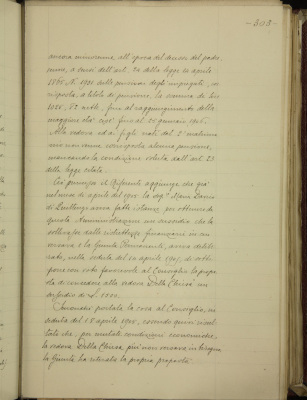 - 303 -
ancora minorenne, all'epoca del decesso del padre,
venne, a sensi dell'art. 22 della legge 14 aprile
1864, N. 1731 sulle pensioni degli impiegati, cor-
risposta, a titolo di pensione, la somma di Lire
1058,83 nette, fino al raggiungimento della
maggiore età cioè fino al 25 gennaio 1906.
Alla vedova ed ai figli nati dal 2° matrimo-
nio non venne corrisposta alcuna pensione,
mancando la condizione voluta dall'art. 23
della legge citata.
Ciò premesso il Riferente aggiunge che già
nel mese di aprile del 1905 la sig.ra
aveva fatto istanza per ottenere da
questa Amministrazione un sussidio che la
sollevasse dalle ristrettezze finanziarie in cui
versava e la Giunta Provinciale, aveva delibe-
rato, nella seduta del 10 aprile 1905, di sotto-
porre con voto favorevole al Consiglio la propo-
sta di concedere alla vedova Della Chiesa un
sussidio di L.
Senonché portata la cosa al Consiglio, in
seduta del 18 aprile 1905, essendo quivi risul-
tato che, per mutate condizioni economiche,
la vedova Della Chiesa, più non versava in bisogno
la Giunta ha ritirata la propria proposta.